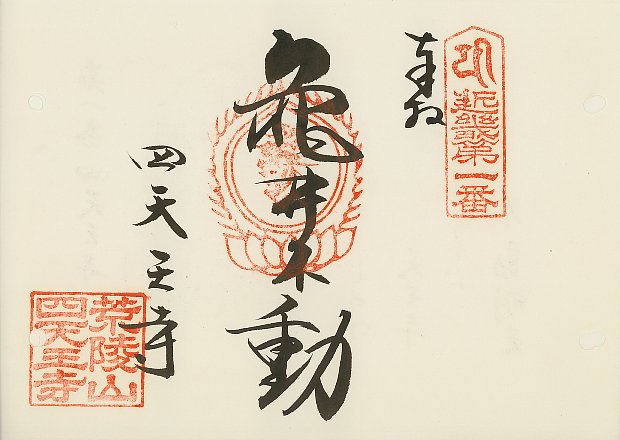 近畿第一番
奉拝
亀井不動
四天王寺
荒陵山
四天王寺